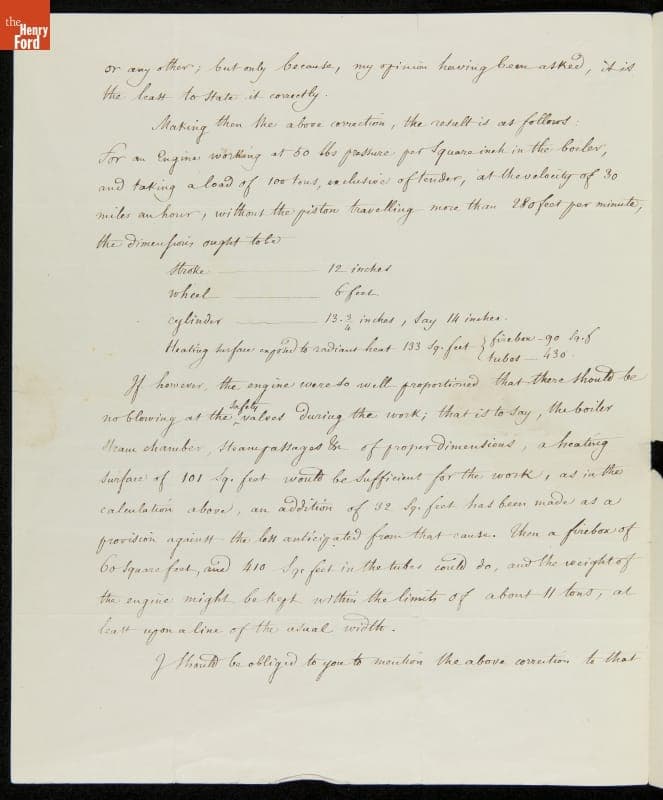 the
Henry
Ford
or any other; but only because, my opinion having been asked, it is
the least to state it correctly.
Making then the above correction, the result is as follows:
For an Engine working at 50 lbs pressure per Square inch in the boiler,
and taking a load of 100 tons, exclusive of tender, at the velocity of 30
miles an hour, without the piston travelling more than 280 feet per minute,
the dimensions ought to be
Stroke ——— 12 inches
wheel ——— 6 feet
cylinder ——— 13 3/4 inches, say 14 inches.
Heating surface exposed to radiant heat 133 Sq. feet { firebox – 90 Sq. f
tubes – 430.
If however, the engine were so well proportioned that there should be
no blowing at the safety valves during the work; that is to say, the boiler
steam chamber, steam passages &c of proper dimensions, a heating
surface of 101 Sq. feet would be sufficient for the work, as in the
calculation above, an addition of 32 Sq. feet has been made as a
provision against the loss anticipated from that cause. Then a firebox of
60 Square feet, and 410 Sq. feet in the tubes could do, and the weight of
the engine might be kept within the limits of about 11 tons, at
least upon a line of the usual width.
I should be obliged to you to mention the above correction to that